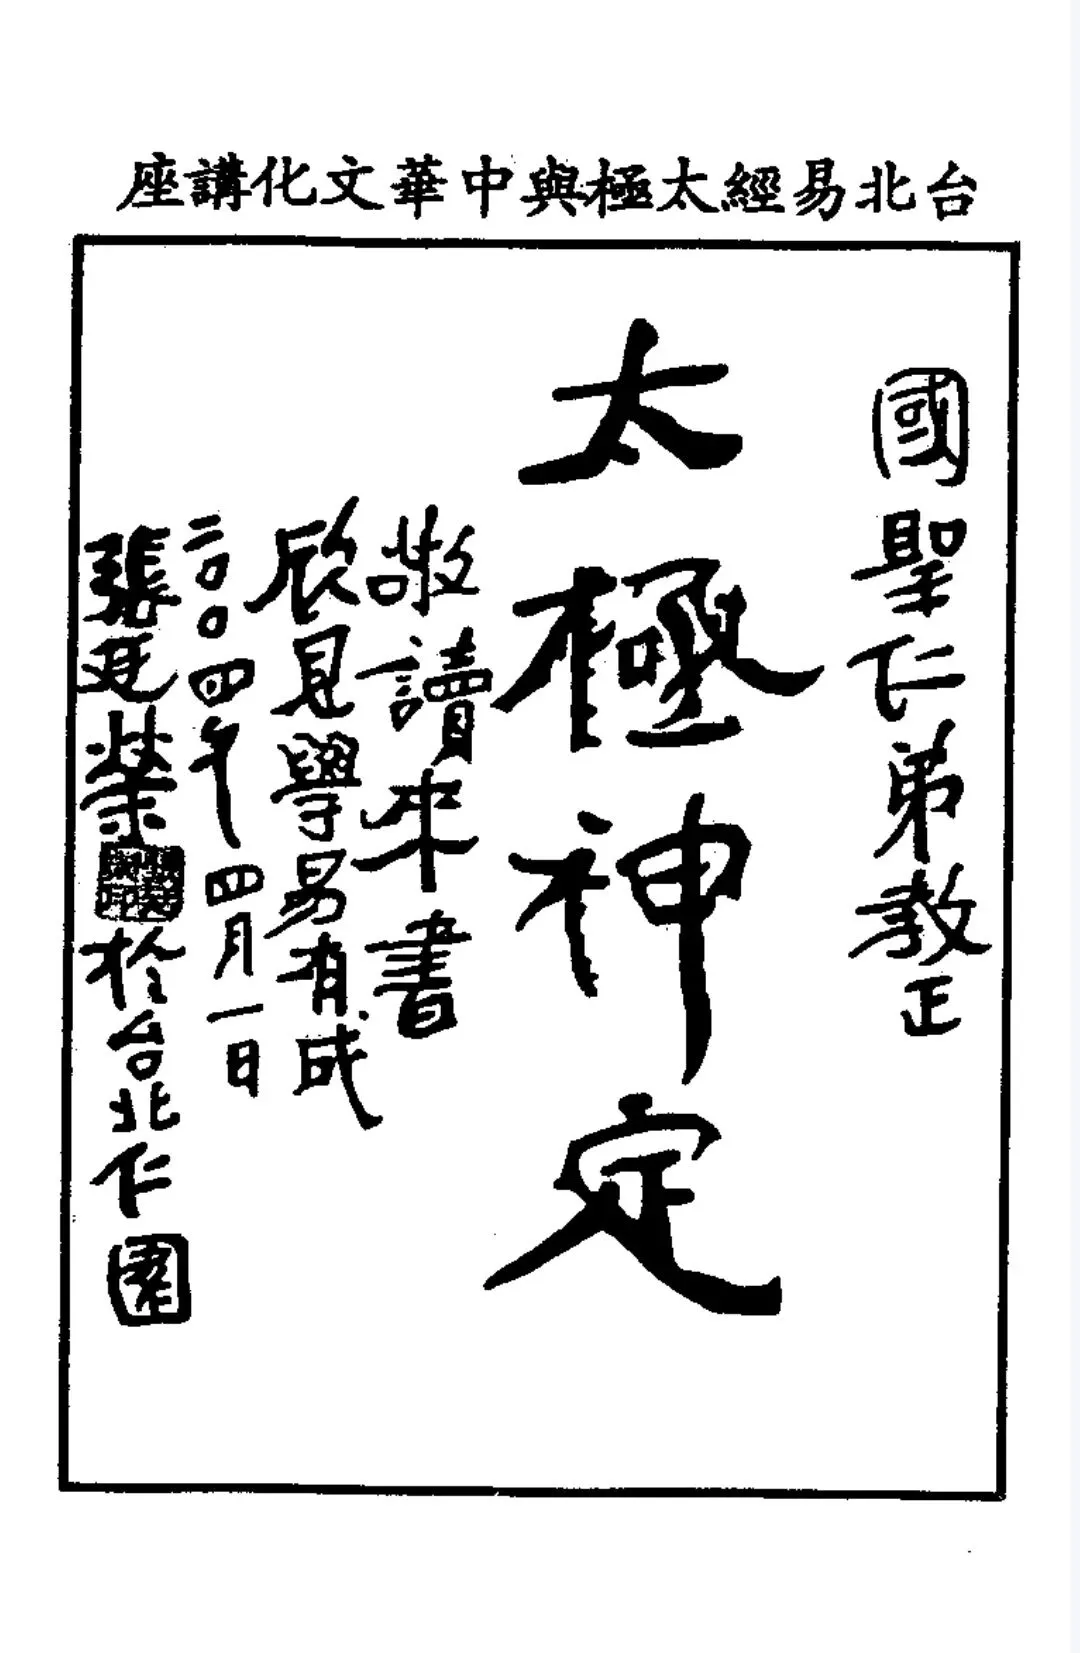 台北易經太極與中華文化講座
國聖仁弟教正
太極神定
敬讀本書
欣見學易有成
二〇〇四年四月一日
張廷榮於台北仁園